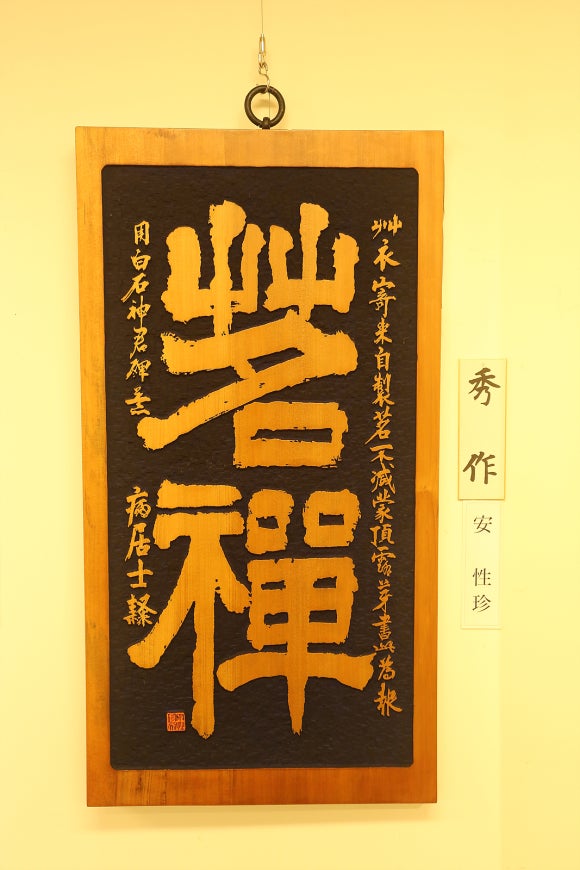 艸衣寄來自製茗不減蒙頂露芽書此為報
茗禪
用白石神君碑意 病居士隷
秀作
安 性珍